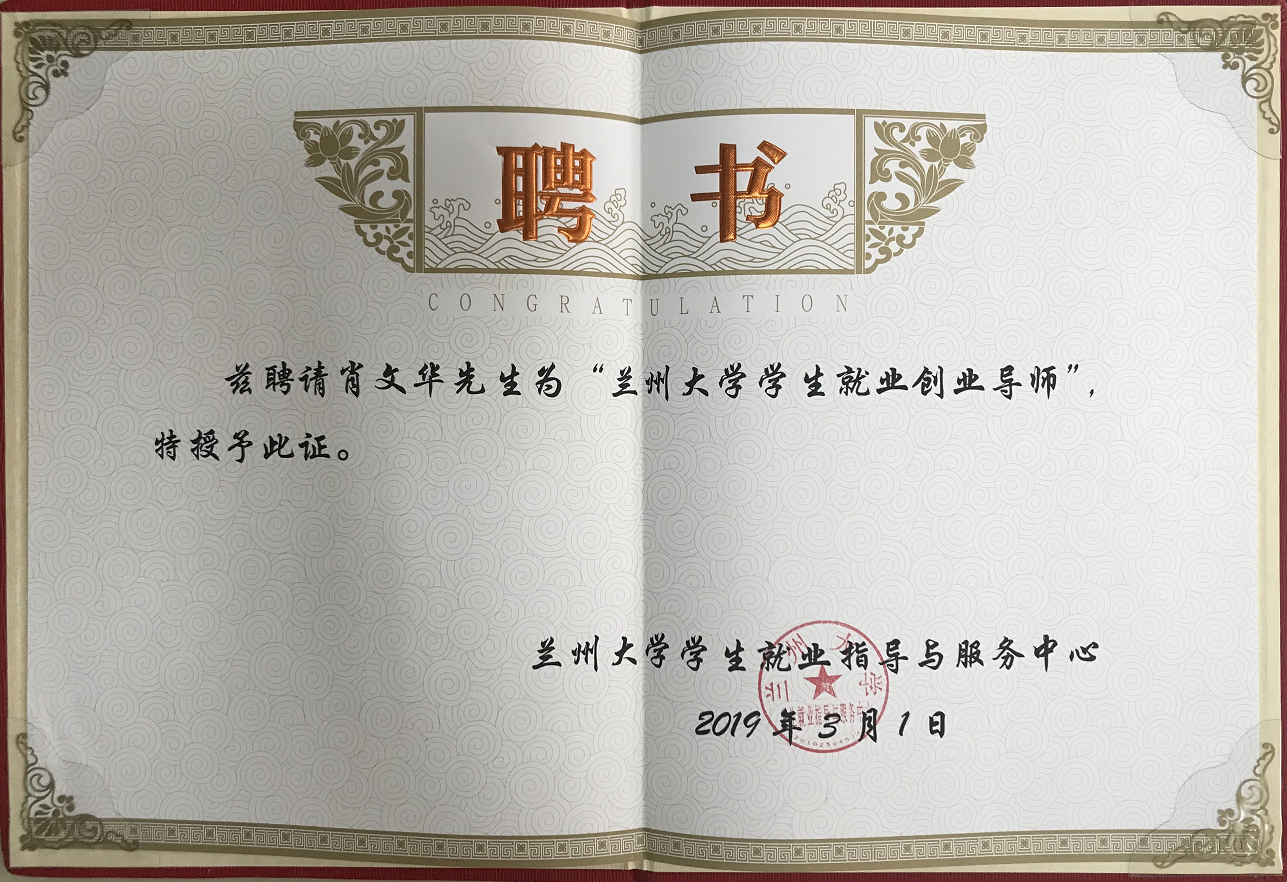 聘书
CONGRATULATION
兹聘请肖文华先生为“兰州大学学生就业创业导师”,
特授予此证。
兰州大学学生就业指导与服务中心
2019年3月1日
兰州大学